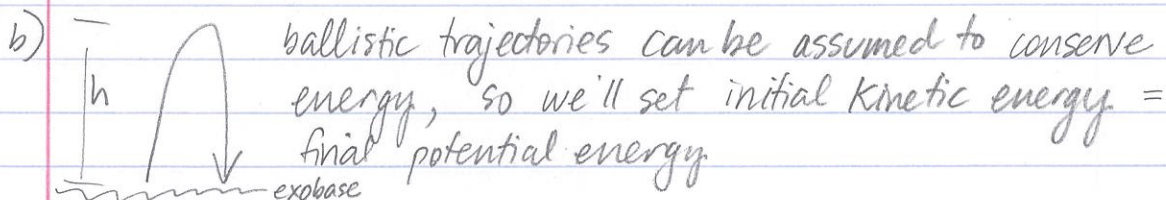 b)
ballistic trajectories can be assumed to conserve
h
energy, so we'll set initial kinetic energy =
final potential energy.
exobase